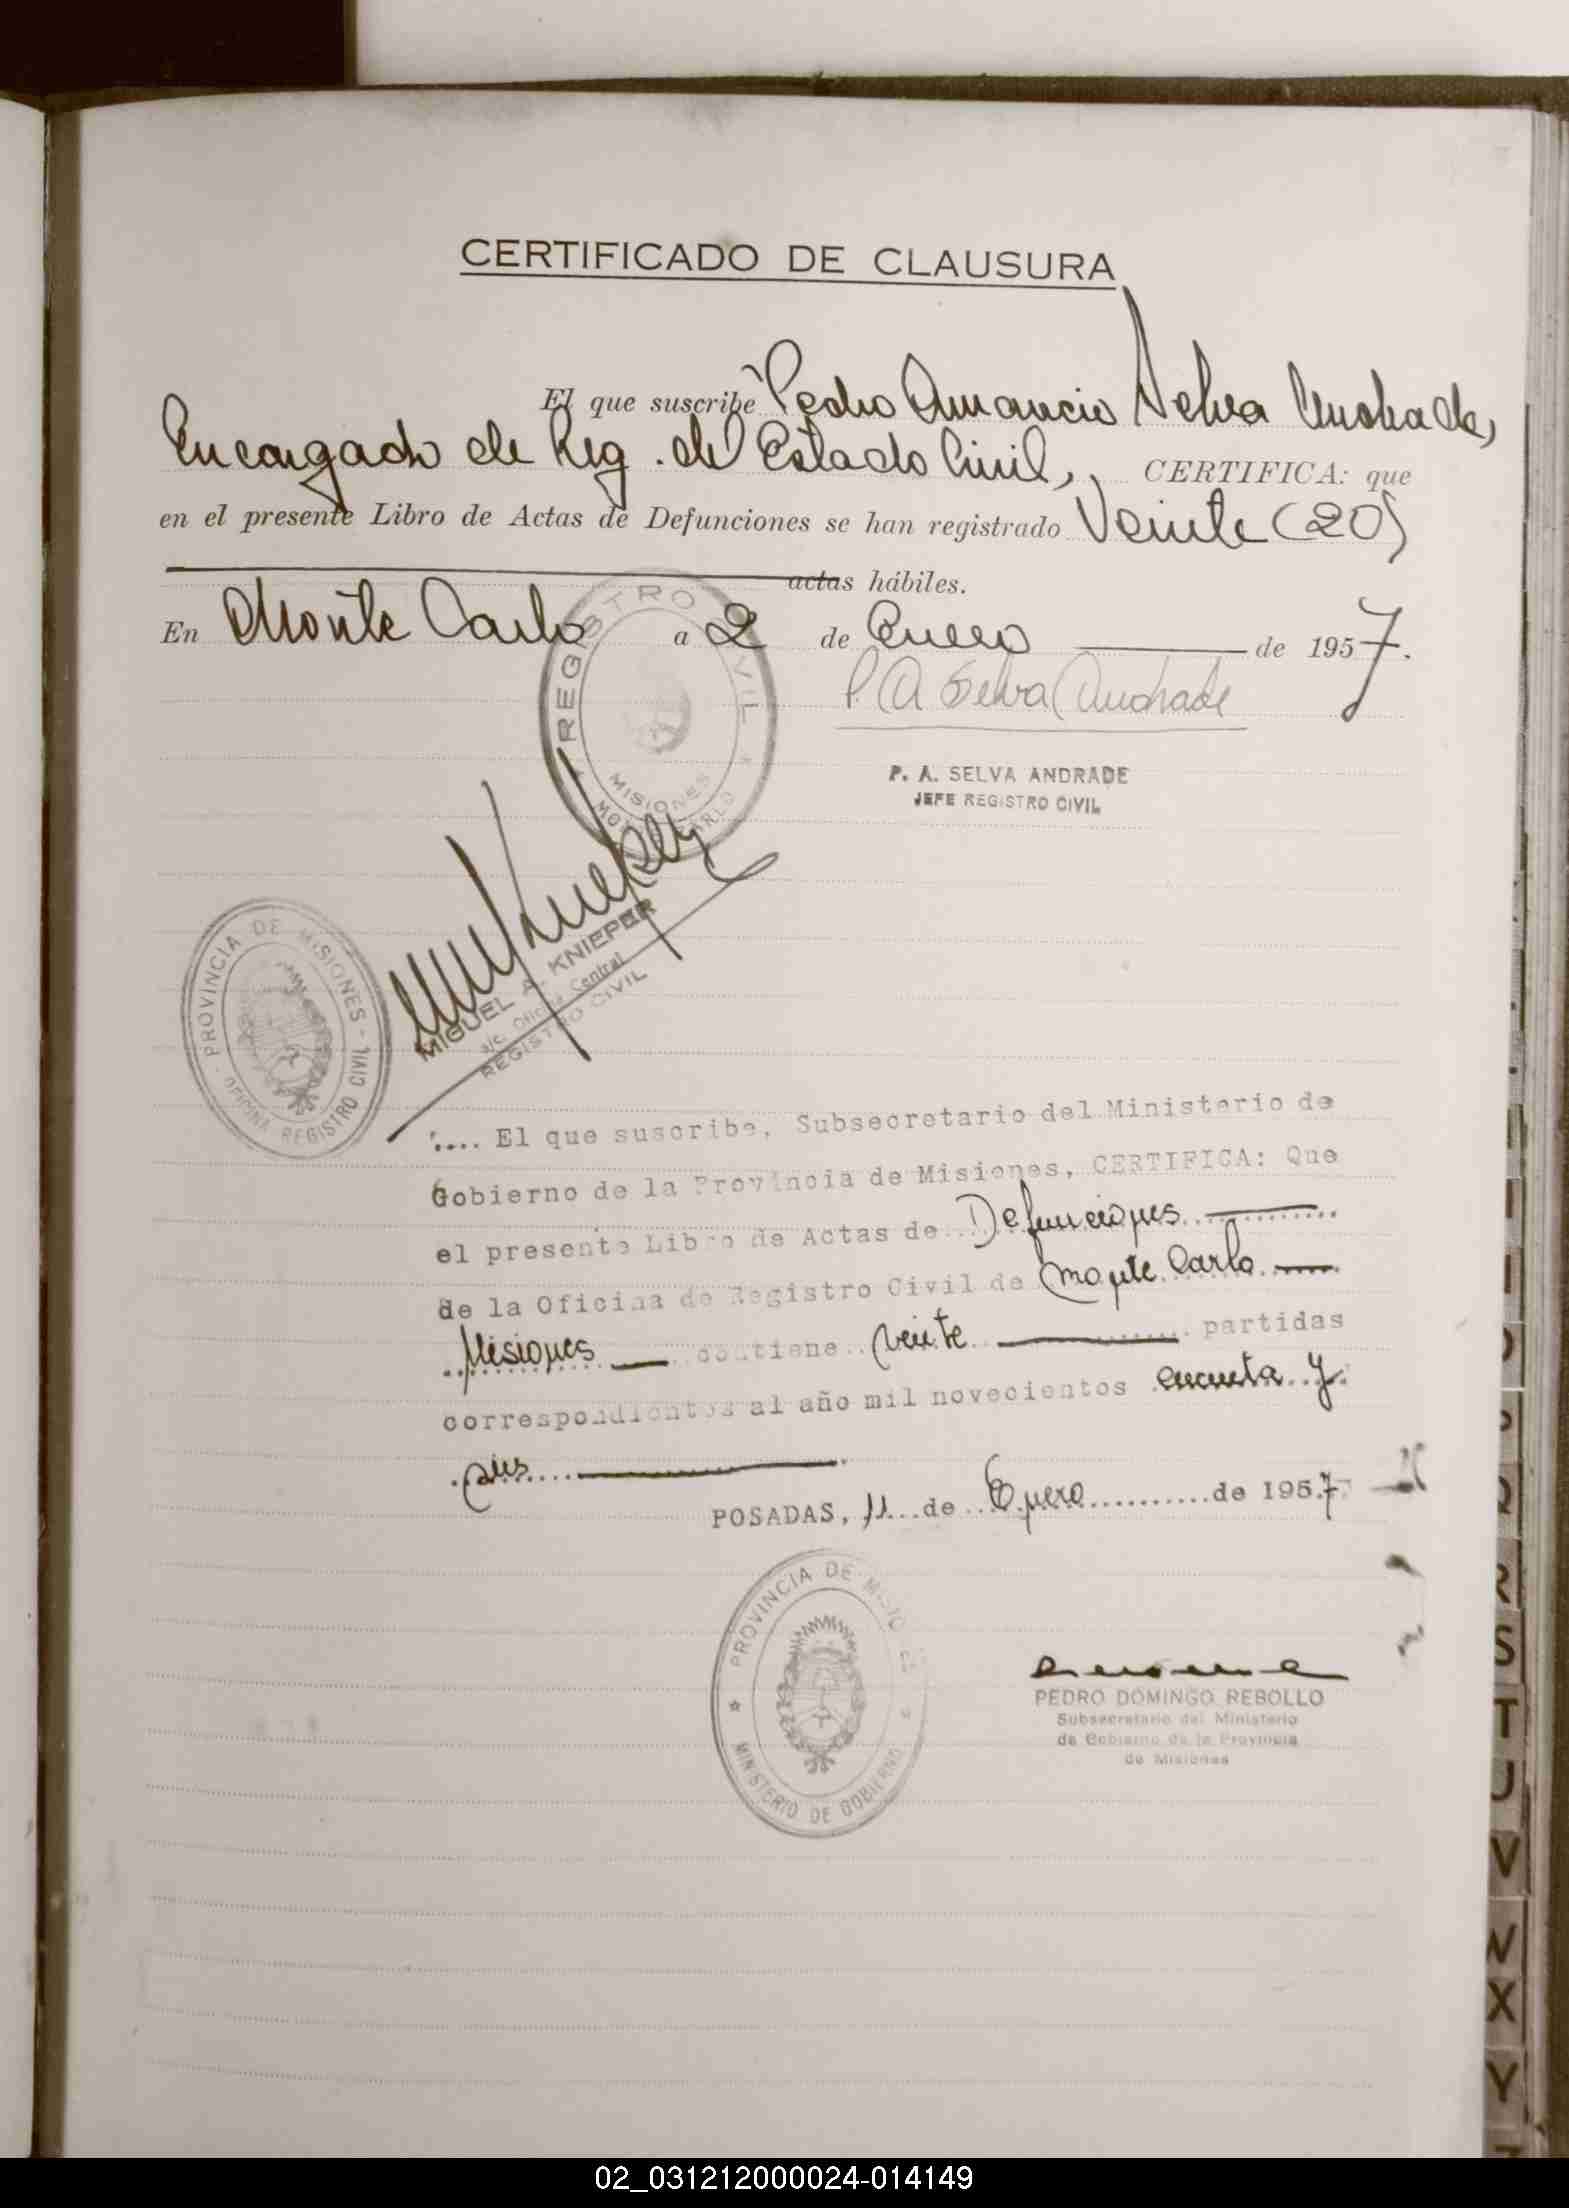 CERTIFICADO DE CLAUSURA
El que suscribe Pedro Amancio Selva Andrade,
Encargado de Reg. del Estado Civil, CERTIFICA: que
en el presente Libro de Actas de Defunciones se han registrado Veinte (20)
actas hábiles.
En Monte Carlo a 2 de Enero de 1957.
P. A Selva Andrade
REGISTRO CIVIL
MISIONES
MONTE CARLO
P. A. SELVA ANDRADE
JEFE REGISTRO CIVIL
MIGUEL A. KNIEPER
a/c. Oficina Central
REGISTRO CIVIL
PROVINCIA DE MISIONES - OFICINA REGISTRO CIVIL
.... El que suscribe, Subsecretario del Ministerio de
Gobierno de la Provincia de Misiones, CERTIFICA: Que
el presente Libro de Actas de Defunciones
de la Oficina de Registro Civil de Monte Carlo
Misiones contiene veinte partidas
correspondientes al año mil novecientos cincuenta y
seis
POSADAS, 11 de Enero de 1957
PROVINCIA DE MISIONES
MINISTERIO DE GOBIERNO
PEDRO DOMINGO REBOLLO
Subsecretario del Ministerio
de Gobierno de la Provincia
de Misiones
Q
R
S
T
U
V
W
X
Y
Z
02_031212000024-014149